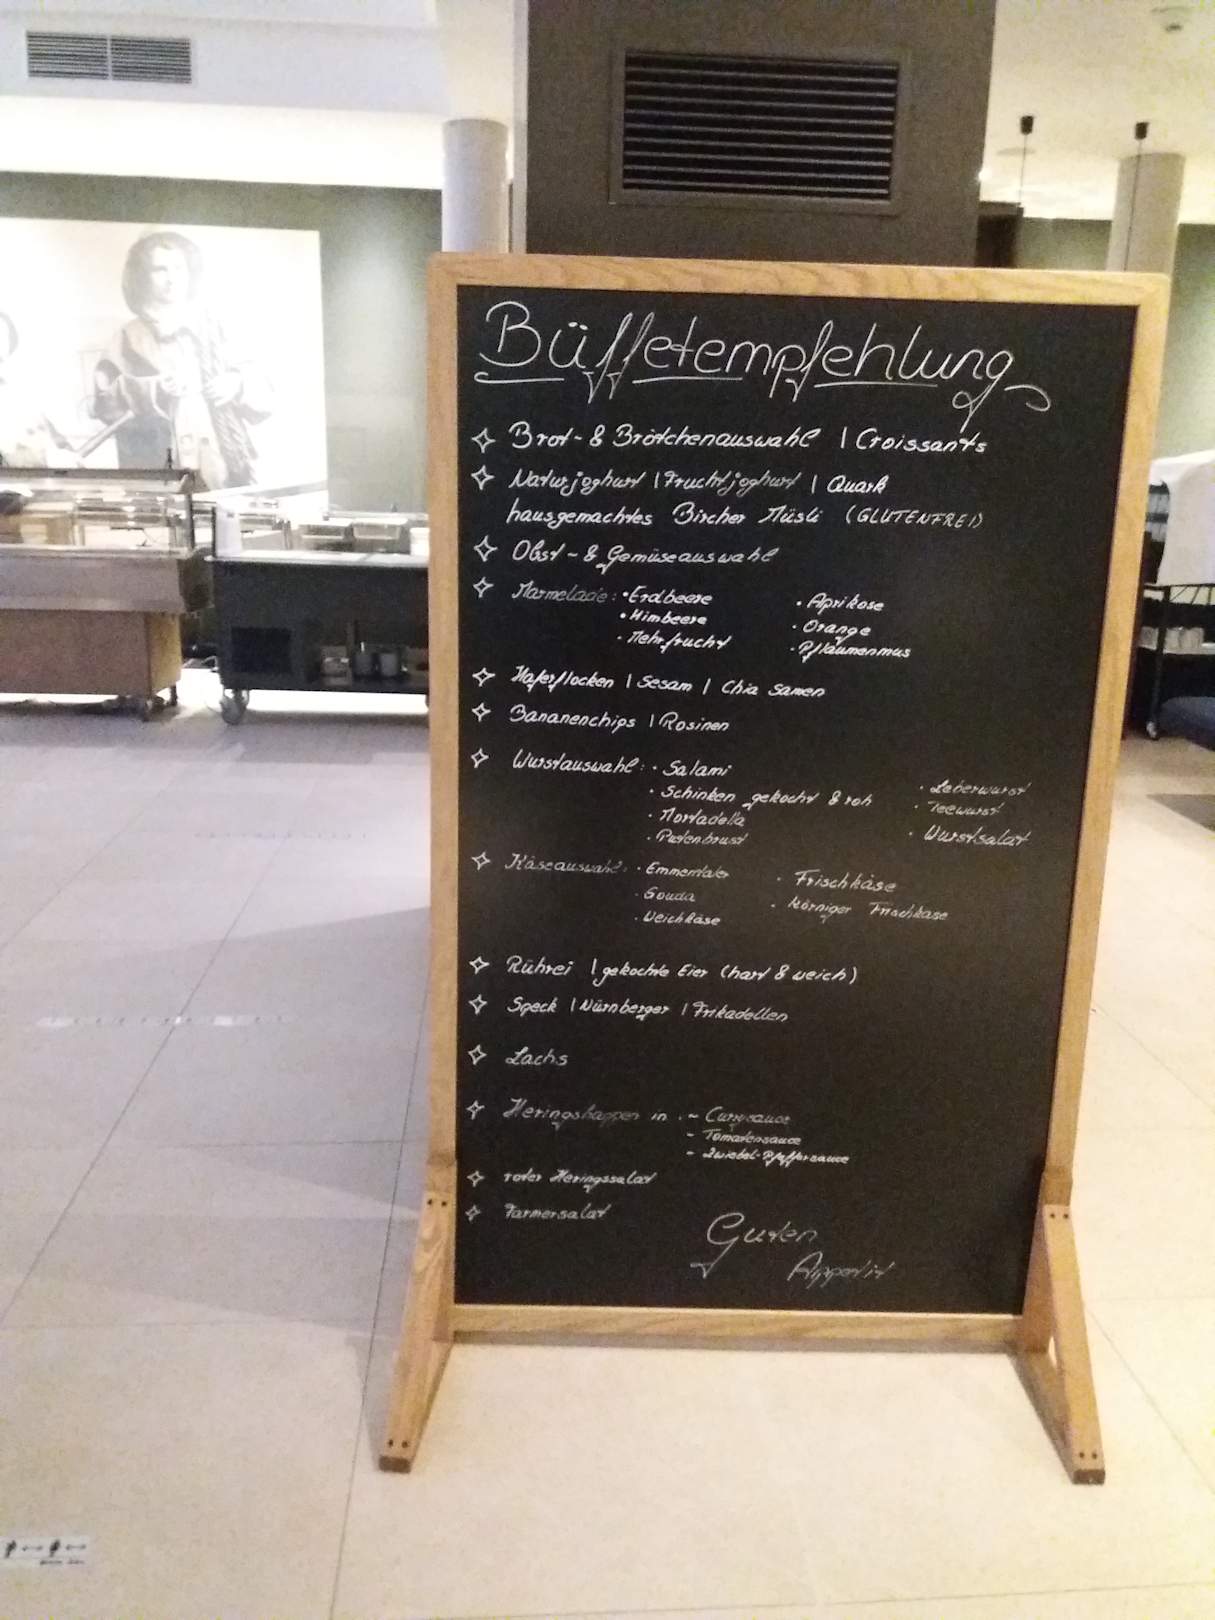 Büffetempfehlung
Brot- & Brötchenauswahl | Croissants
Naturjoghurt | Fruchtjoghurt | Quark
hausgemachtes Bircher Müsli (GLUTENFREI)
Obst- & Gemüseauswahl
Marmelade: • Erdbeere • Aprikose
• Himbeere • Orange
• Mehrfrucht • Pflaumenmus
Haferflocken | Sesam | Chia Samen
Bananenchips | Rosinen
Wurstauswahl: • Salami • Leberwurst
• Schinken gekocht & roh • Teewurst
• Mortadella • Wurstsalat
• Putenbrust
Käseauswahl: • Emmentaler • Frischkäse
• Gouda • körniger Frischkäse
• Weichkäse
Rührei | gekochte Eier (hart & weich)
Speck | Nürnberger | Frikadellen
Lachs
Heringshappen in : - Currysauce
- Tomatensauce
- Zwiebel-Pfeffersauce
roter Heringssalat
Farmersalat
Guten
Appetit